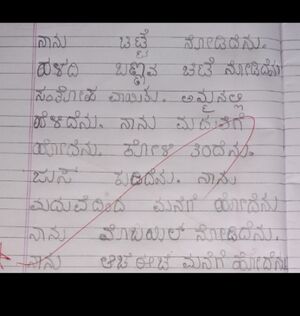 ನಾನು ಚಿಟ್ಟೆ ನೋಡಿದೆನು.
ಹಳದಿ ಬಣ್ಣವ ಚಿಟೆ ನೋಡಿದೆನು
ಸಂತೋಷ ವಾಯಿತು. ಅಮ್ಮನಲ್ಲಿ
ಹೇಳಿದೆನು. ನಾನು ಮದುವೆಗೆ
ಹೋದೆನು. ಕೋಳಿ ತಿಂದೆನು.
ಜುಸ್ ಕುಡಿದೆನು. ನಾನು
ಮದುವೆಯಿಂದ ಮನೆಗೆ ಹೋದೆನು
ನಾನು ಮೊಬಯಿಲ್ ನೋಡಿದೆನು.
ನಾನು ಆಚ ಈಚ ಮನೆಗೆ ಹೋದೆನು